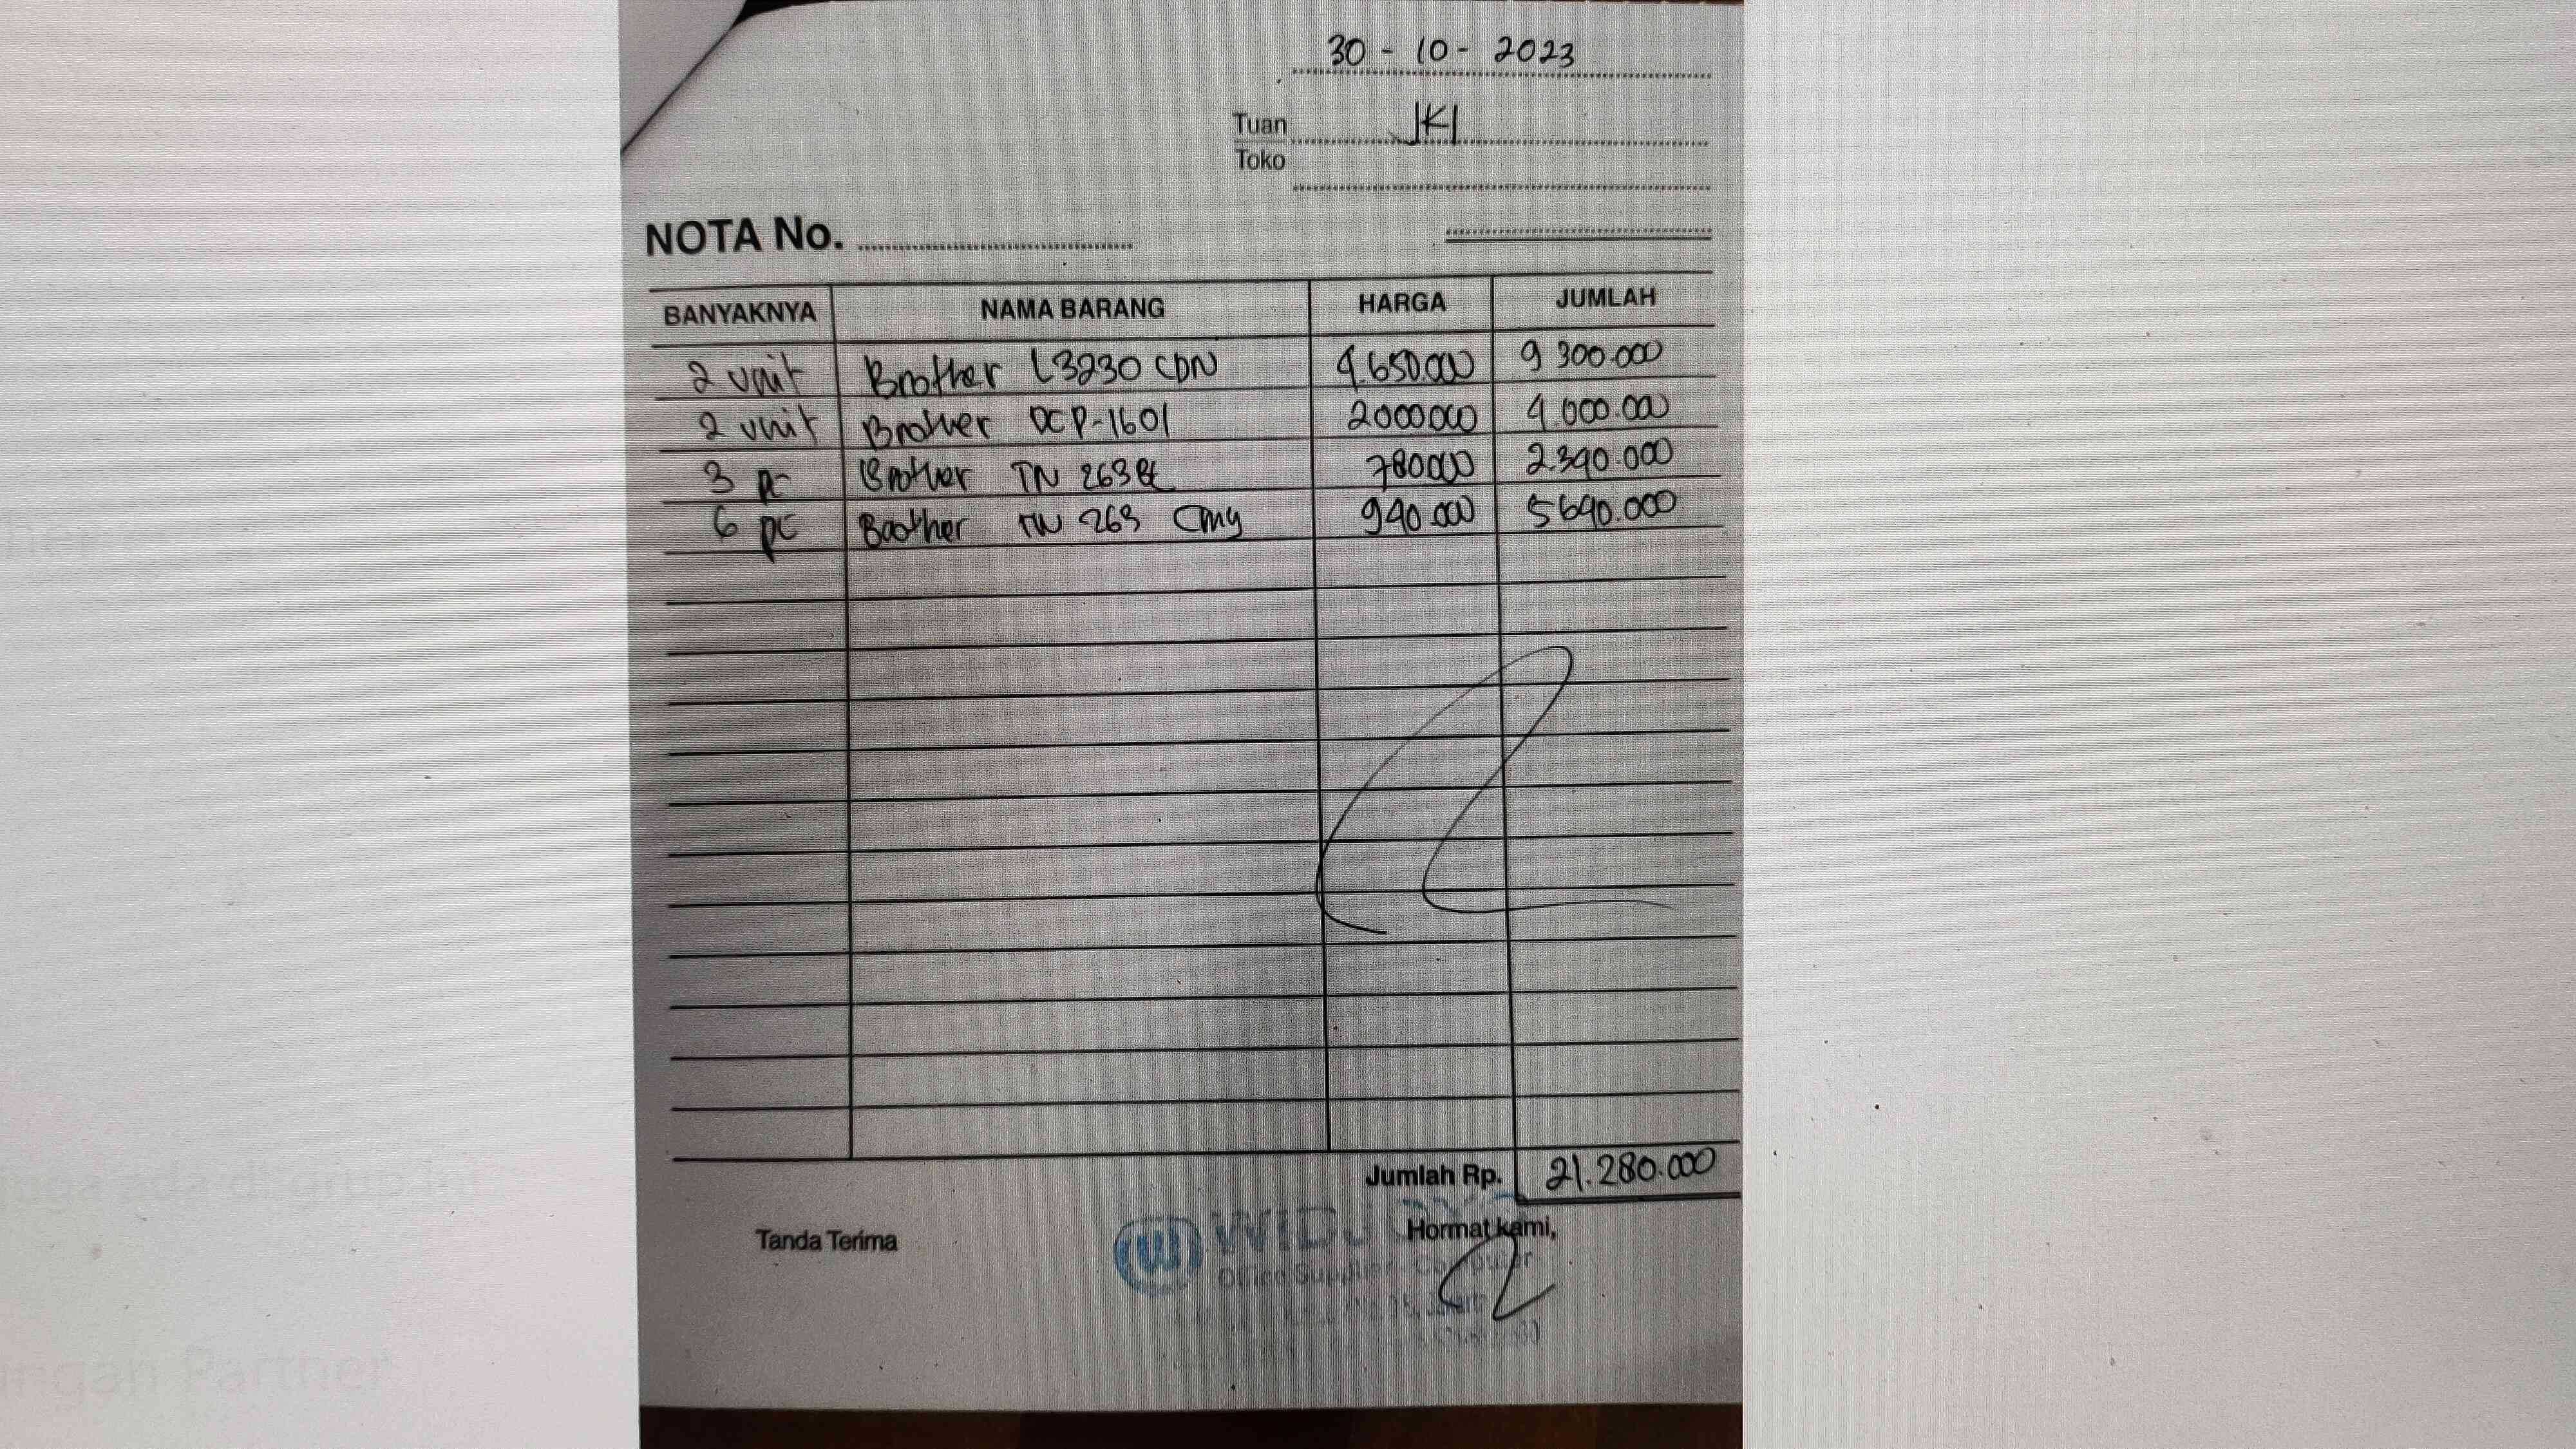 30 - 10 - 2023
Tuan JKI
Toko
NOTA No.
BANYAKNYA NAMA BARANG HARGA JUMLAH
2 unit Brother L3230 CDN 4.650.000 9 300.000
2 unit Brother DCP-1601 2000000 4.000.000
3 pc Brother TN 263 BK 780000 2.340.000
6 pc Brother TN 263 CMY 940.000 5640.000
juga ada di grup ini
Jumlah Rp. 21.280.000
Tanda Terima
Hormat kami,
Office Supplier - Computer
Jakarta
Partner